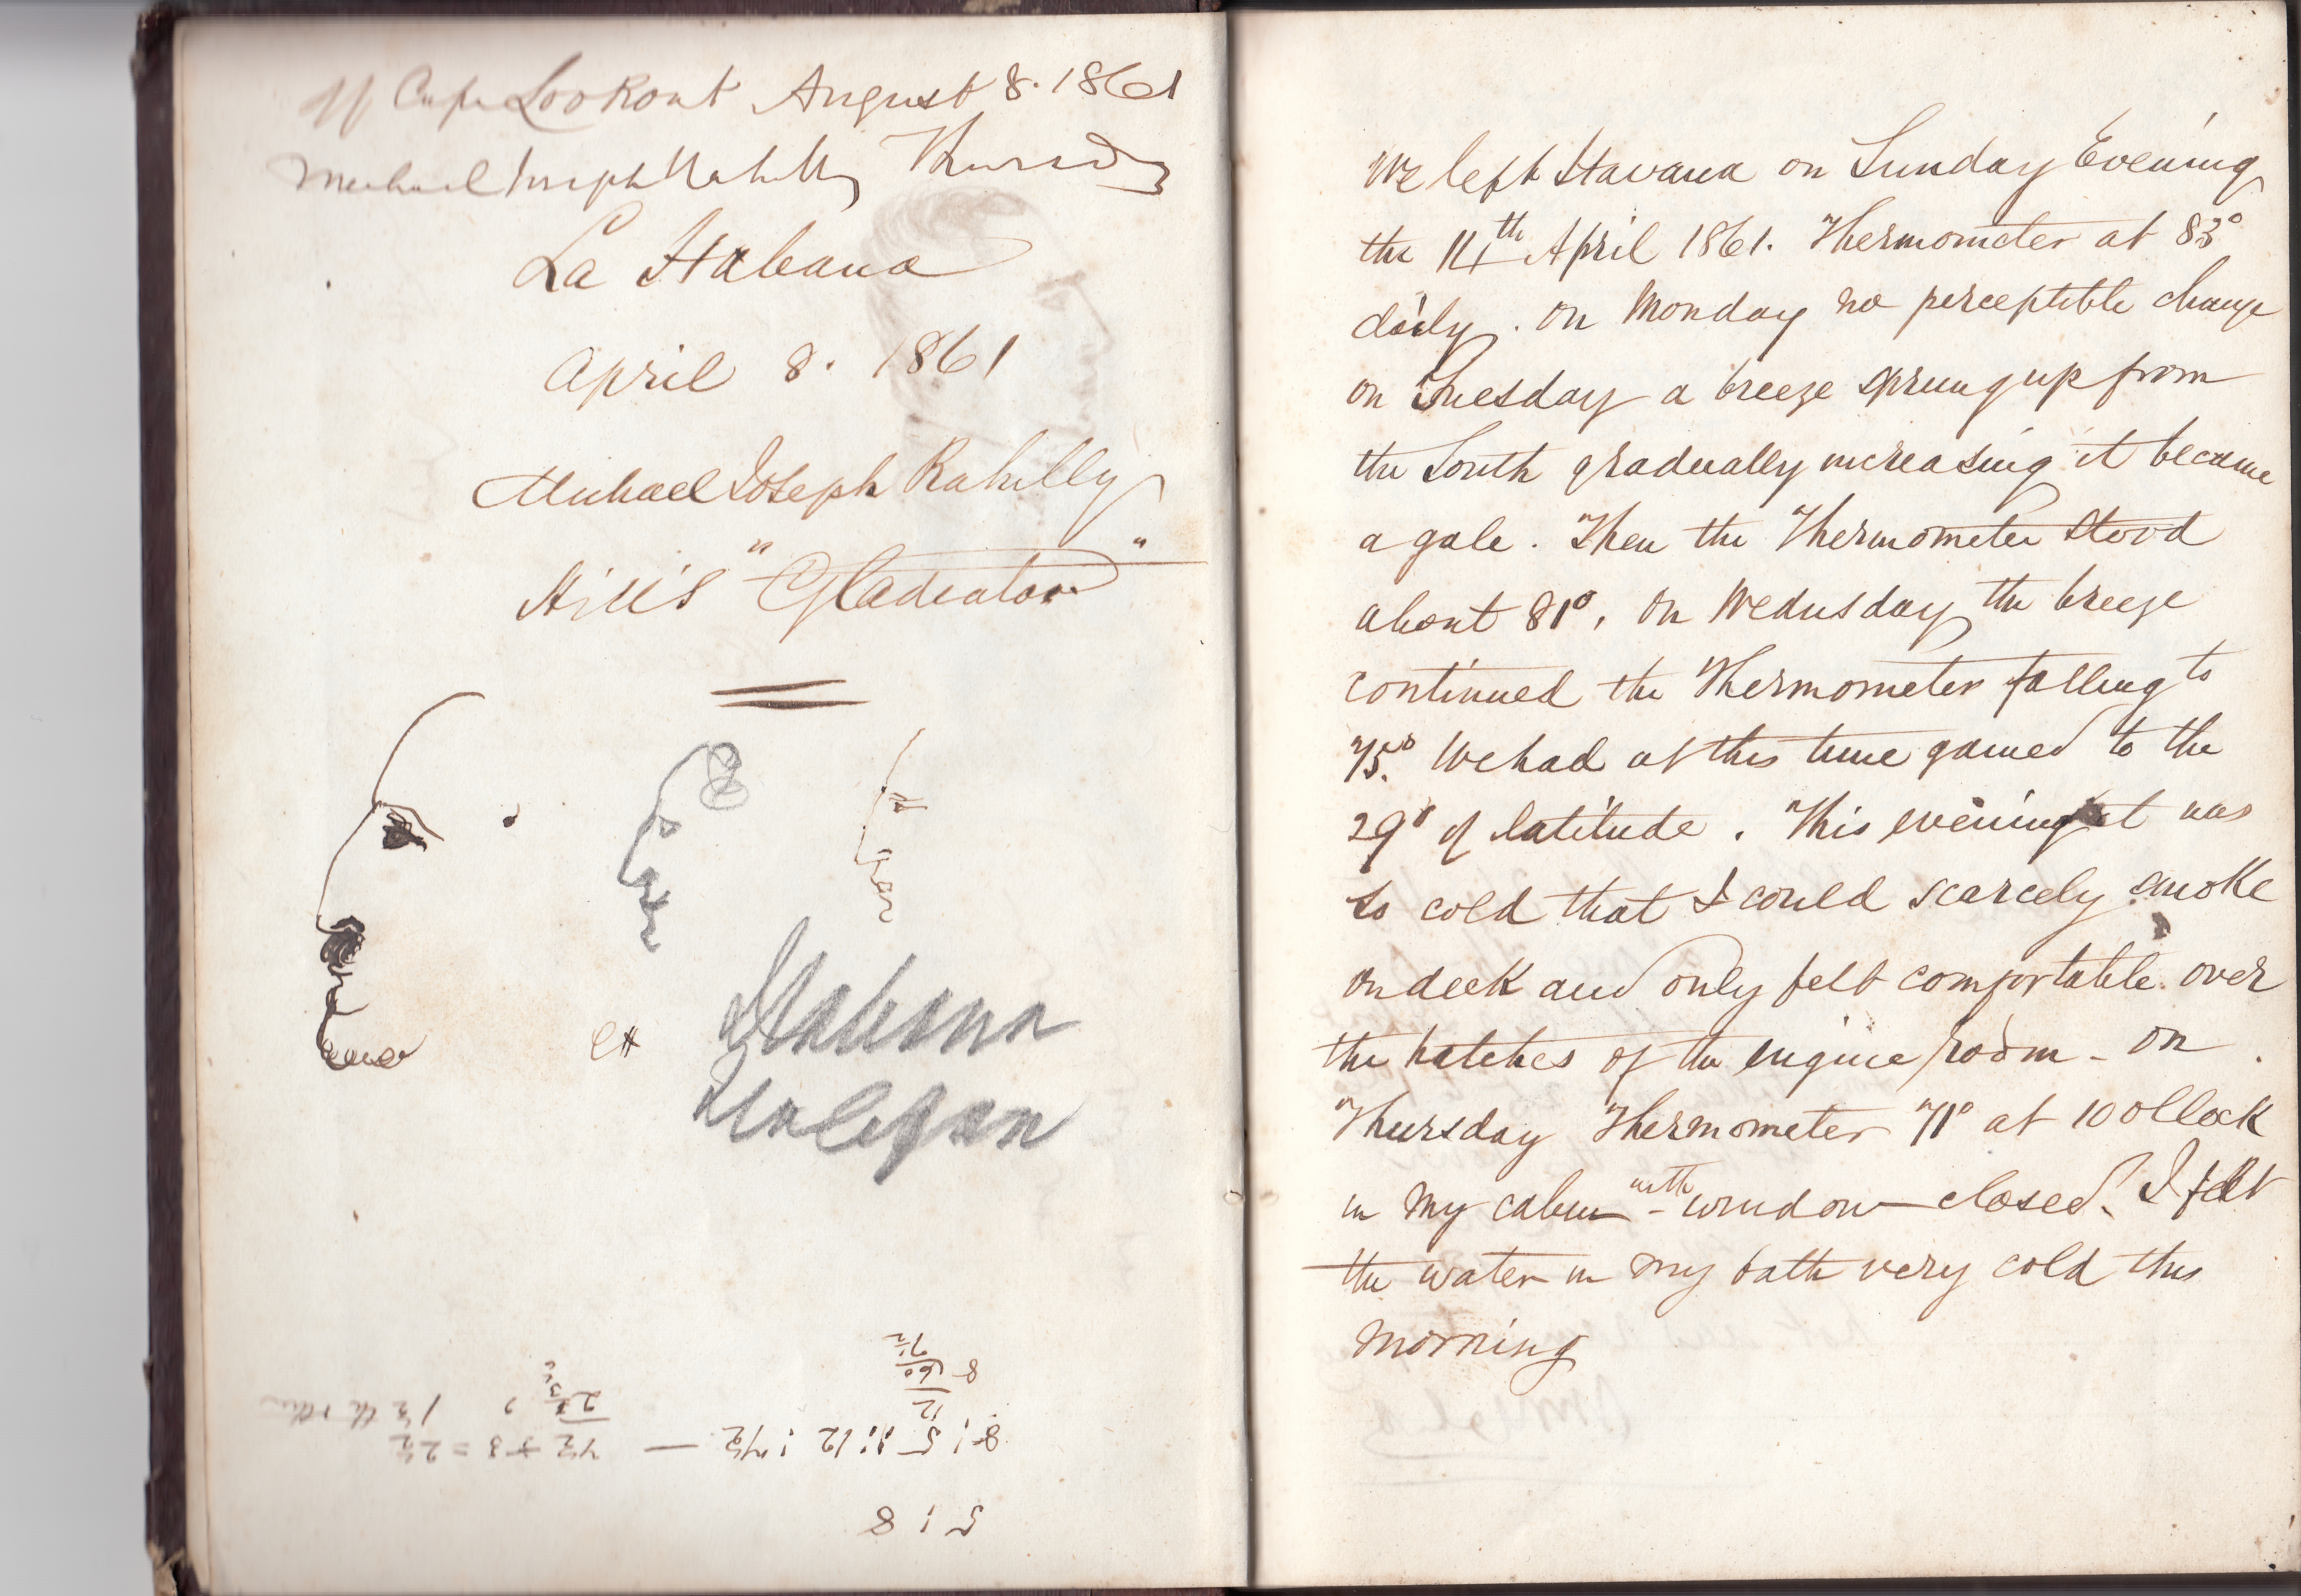 off Cape Lookout August 8. 1861
Michael Joseph Rahilly Thursday
La Habana
April 8. 1861
Michael Joseph Rahilly
Hill's "Gladiator"
Habana
8
60
7½
12
8 : 5 :: 12 : 7½ —
7½ ÷ 3 = 2½
5 : 8
We left Havana on Sunday Evening
the 14th April 1861. Thermometer at 83°
daily. On Monday no perceptible change
on Tuesday a breeze sprung up from
the South gradually increasing it became
a gale. Then the Thermometer stood
about 81°. On Wednesday the breeze
continued the Thermometer falling to
75°. We had at this time gained to the
29° of latitude. This evening it was
so cold that I could scarcely smoke
on deck and only felt comfortable over
the hatches of the engine room - On
Thursday Thermometer 71° at 10 oClock
in my cabin with window closed. I felt
the water in my bath very cold this
morning